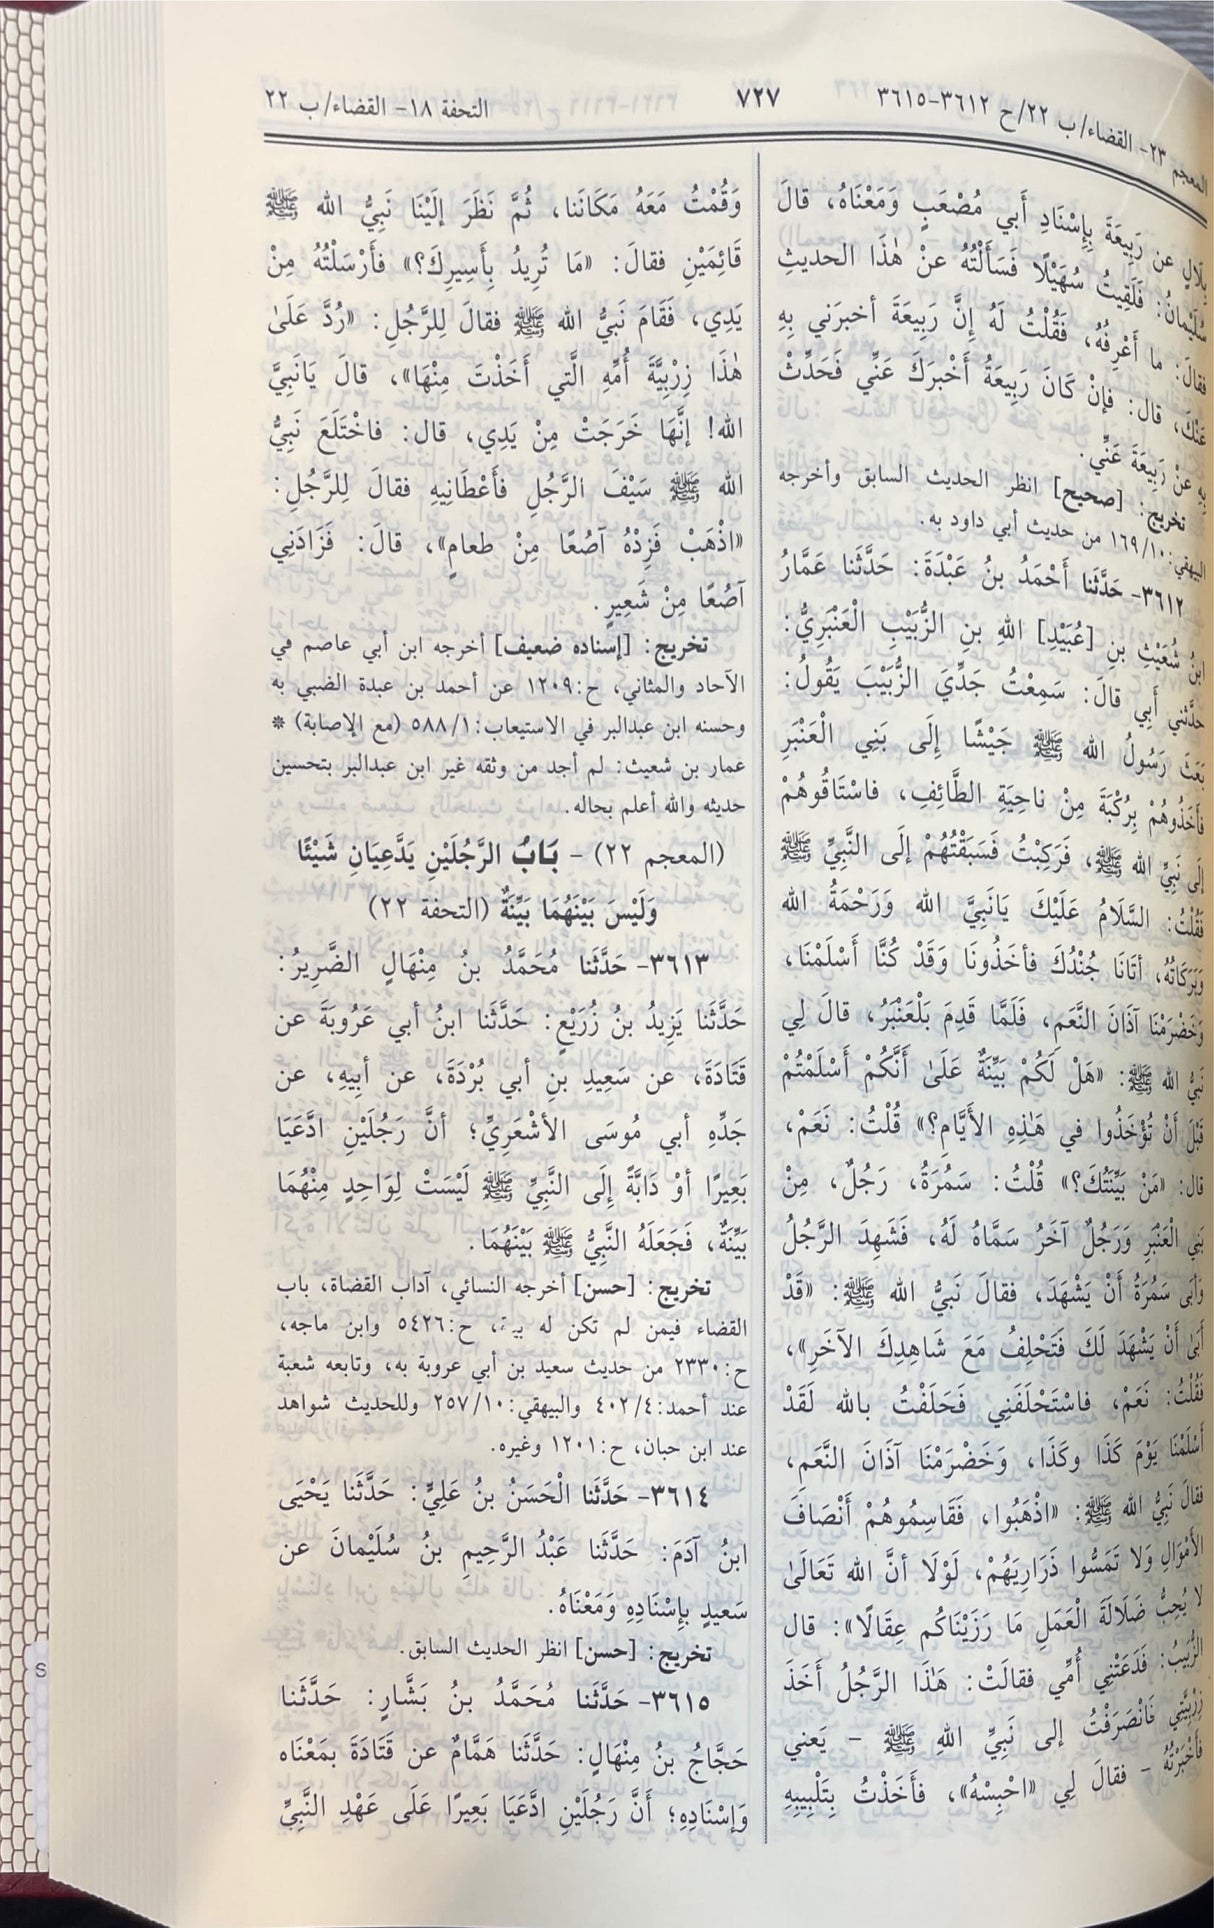 المعجم ٢٣- القضاء/ ب ٢٢/ح ٣٦١٢-٣٦١٥
٧٢٧
التحفة ١٨- القضاء/ ب ٢٢
بِلَالٍ عن رَبِيعَةَ بِإِسْنَادِ أَبي مُصْعَبٍ وَمَعْنَاهُ، قالَ
سُلَيْمانُ: فَلَقِيتُ سُهَيْلًا فَسَأَلْتُهُ عنْ هٰذَا الحديثِ
فقالَ: ما أَعْرِفُهُ، فَقُلْتُ لَهُ إِنَّ رَبِيعَةَ أخبرَني بِهِ
عَنْكَ، قال: فإنْ كَانَ رَبِيعَةُ أَخْبرَكَ عَنِّي فَحَدِّثْ
بِهِ عنْ رَبِيعَةَ عَنِّي.
تخريج: [صحيح] انظر الحديث السابق وأخرجه
البيهقي:١٠/ ١٦٩ من حديث أبي داود به.
٣٦١٢- حَدَّثَنا أَحْمَدُ بنُ عَبْدَةَ: حَدَّثَنا عَمَّارُ
ابنُ شُعَيْثِ بنِ [عُبَيْدِ] اللهِ بنِ الزُّبَيْبِ الْعَنْبَرِيُّ:
حدَّثني أَبِي قالَ: سَمِعْتُ جَدِّيَ الزُّبَيْبَ يَقُولُ:
بَعَثَ رَسُولُ الله ﷺ جَيْشًا إِلَى بَنِي الْعَنْبَرِ
فأَخَذُوهُمْ بِرُكْبَةَ مِنْ ناحِيَةِ الطَّائِفِ، فاسْتَاقُوهُمْ
إلَى نَبِيِّ الله ﷺ، فَرَكِبْتُ فَسَبَقْتُهُمْ إلَى النَّبِيِّ ﷺ
فَقُلْتُ: السَّلَامُ عَلَيْكَ يَانَبِيَّ الله وَرَحْمَةُ الله
وَبَرَكَاتُهُ، أتَانَا جُنْدُكَ فأخَذُونَا وَقَدْ كُنَّا أَسْلَمْنَا،
وَخَضْرَمْنَا آذَانَ النَّعَمِ، فَلَمَّا قَدِمَ بَلْعَنْبَرُ، قالَ لِي
نَبِيُّ الله ﷺ: «هَلْ لَكُمْ بَيِّنَةٌ عَلَىٰ أَنَّكُمْ أَسْلَمْتُمْ
قَبْلَ أَنْ تُؤْخَذُوا في هَذِهِ الأيَّامِ؟» قُلْتُ: نَعَمْ،
قال: «مَنْ بَيِّنَتُكَ؟» قُلْتُ: سَمُرَةُ، رَجُلٌ، مِنْ
بَنِي الْعَنْبَرِ وَرَجُلٌ آخَرُ سَمَّاهُ لَهُ، فَشَهِدَ الرَّجُلُ
وَأَبَى سَمُرَةُ أَنْ يَشْهَدَ، فقالَ نَبيُّ الله ﷺ: «قَدْ
أَبىٰ أَنْ يَشْهَدَ لَكَ فَتَحْلِفُ مَعَ شَاهِدِكَ الآخَرِ»،
فَقُلْتُ: نَعَمْ، فاسْتَحْلَفَنِي فَحَلَفْتُ بالله لَقَدْ
أَسْلَمْنَا يَوْمَ كَذَا وكَذَا، وَخَضْرَمْنَا آذَانَ النَّعَمِ،
فقالَ نَبِيُّ الله ﷺ: «اذْهَبُوا، فَقَاسِمُوهُمْ أَنْصَافَ
الأمْوَالِ وَلا تَمَسُّوا ذَرَارِيَهُمْ، لَوْلَا أنَّ الله تَعَالَىٰ
لا يُحِبُّ ضَلَالَةَ الْعَمَلِ مَا رَزَيْنَاكُم عِقَالًا»: قال
الزُّبَيْبُ: فَدَعَتْنِي أُمِّي فقالَتْ: هَذَا الرَّجُلُ أَخَذَ
زِرْبِيَّتِي فَانْصَرَفْتُ إلى نَبِيِّ اللهِ ﷺ - يَعني
فَأخْبَرْتُهُ - فقالَ لِي «احْبِسْهُ»، فأخَذْتُ بِتَلْبِيبِهِ
وَقُمْتُ مَعَهُ مَكَانَنا، ثُمَّ نَظَرَ إلَيْنَا نَبِيُّ الله ﷺ
قَائِمَيْنِ فقالَ: «مَا تُرِيدُ بِأَسِيرِكَ؟» فأرْسَلْتُهُ مِنْ
يَدِي، فَقَامَ نَبيُّ الله ﷺ فقالَ لِلرَّجُلِ: «رُدَّ عَلَىٰ
هٰذَا زِرْبِيَّةَ أُمِّهِ الَّتي أَخَذْتَ مِنْهَا»، قالَ يَانَبِيَّ
الله! إنَّهَا خَرَجَتْ مِنْ يَدِي، قال: فاخْتَلَعَ نَبيُّ
الله ﷺ سَيْفَ الرَّجُلِ فأَعْطَانِيهِ فقالَ لِلرَّجُلِ:
«اذْهَبْ فَزِدْهُ آصُعًا مِنْ طعامٍ»، قالَ: فَزَادَنِي
آصُعًا مِنْ شَعِيرٍ.
تخريج: [إسناده ضعيف] أخرجه ابن أبي عاصم في
الآحاد والمثاني، ح:١٢٠٩ عن أحمد بن عبدة الضبي به
وحسنه ابن عبدالبر في الاستيعاب:١/ ٥٨٨ (مع الإصابة) *
عمار بن شعيث: لم أجد من وثقه غير ابن عبدالبر بتحسين
حديثه والله أعلم بحاله.
(المعجم ٢٢) - بَابُ الرَّجُلَيْنِ يَدَّعِيَانِ شَيْئًا
وَلَيْسَ بَيْنَهُمَا بَيِّنَةٌ (التحفة ٢٢)
٣٦١٣- حَدَّثَنا مُحَمَّدُ بنُ مِنْهَالٍ الضَّرِيرُ:
حَدَّثَنا يَزِيدُ بنُ زُرَيْعٍ: حَدَّثَنا ابنُ أبي عَرُوبَةَ عن
قَتَادَةَ، عن سَعِيدِ بنِ أبي بُرْدَةَ، عن أبِيهِ، عن
جَدِّهِ أبي مُوسَى الأشْعَرِيِّ؛ أنَّ رَجُلَيْنِ ادَّعَيَا
بَعِيرًا أوْ دَابَّةً إلَى النَّبيِّ ﷺ لَيْسَتْ لِوَاحِدٍ مِنْهُمَا
بَيِّنَةٌ، فَجَعَلَهُ النَّبيُّ ﷺ بَيْنَهُمَا.
تخريج: [حسن] أخرجه النسائي، آداب القضاة، باب
القضاء فيمن لم تكن له بينة، ح:٥٤٢٦ وابن ماجه،
ح:٢٣٣٠ من حديث سعيد بن أبي عروبة به، وتابعه شعبة
عند أحمد:٤/ ٤٠٢ والبيهقي:١٠/ ٢٥٧ وللحديث شواهد
عند ابن حبان، ح:١٢٠١ وغيره.
٣٦١٤- حَدَّثَنا الْحَسَنُ بنُ عَلِيٍّ: حَدَّثَنا يَحْيَى
ابنُ آدَمَ: حَدَّثَنا عَبْدُ الرَّحِيمِ بنُ سُلَيْمانَ عن
سَعيدٍ بإِسْنَادِهِ وَمَعْنَاهُ.
تخريج: [حسن] انظر الحديث السابق.
٣٦١٥- حَدَّثَنا مُحَمَّدُ بنُ بَشَّارٍ: حَدَّثَنا
حَجَّاجُ بنُ مِنْهَالٍ: حَدَّثَنا هَمَّامٌ عن قَتَادَةَ بمَعْنَاه
وَإسْنَادِهِ؛ أَنَّ رَجُلَيْنِ ادَّعَيَا بَعِيرًا عَلَى عَهْدِ النَّبيِّ